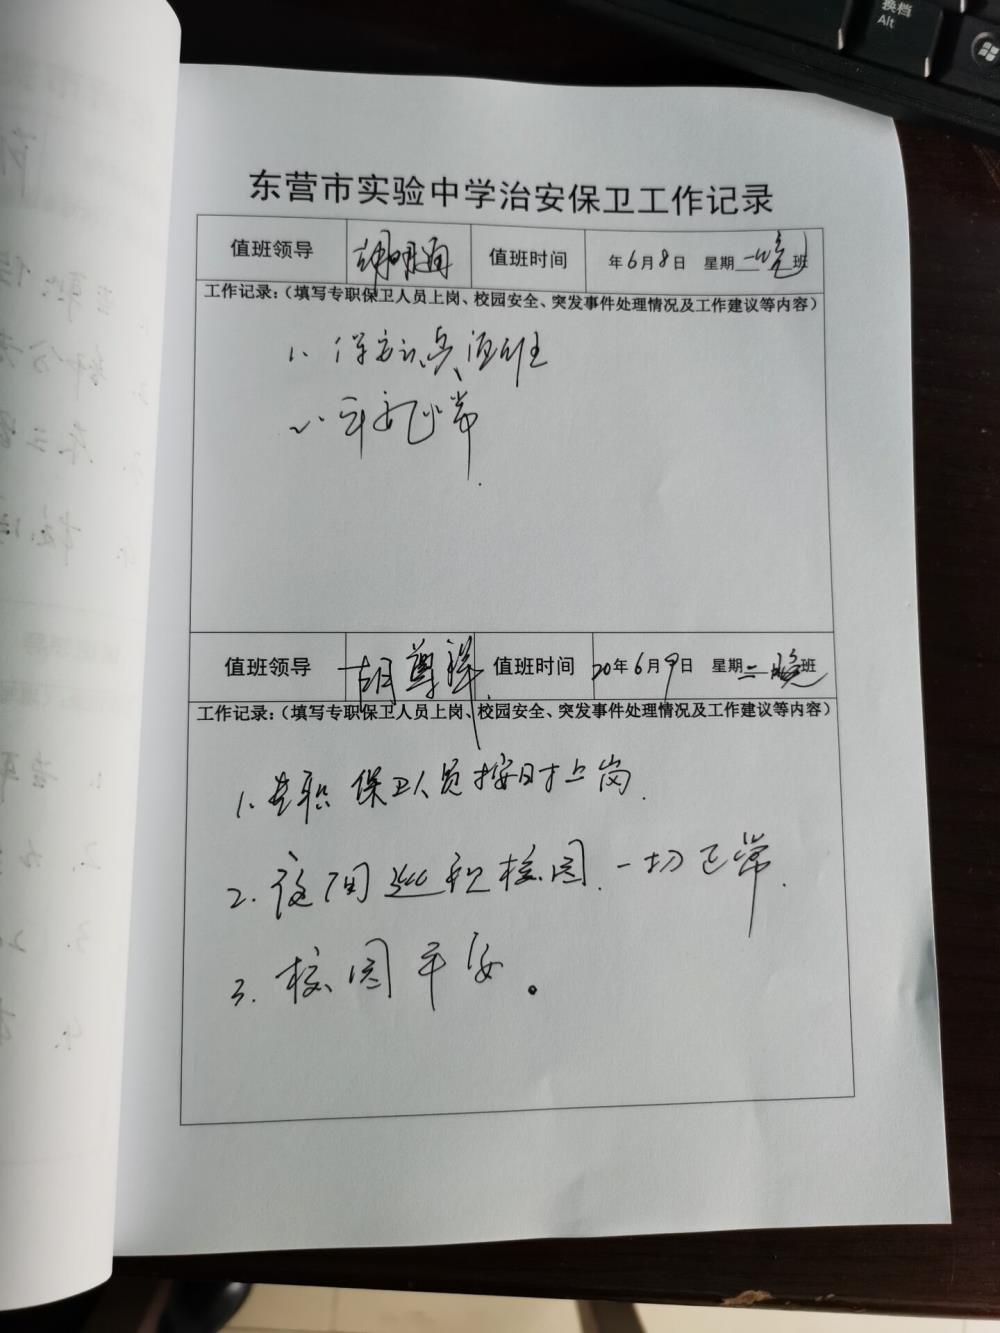 换档
Alt
东营市实验中学治安保卫工作记录
值班领导 胡明涌 值班时间 年6月8日 星期一晚班
工作记录：（填写专职保卫人员上岗、校园安全、突发事件处理情况及工作建议等内容）
1、保安认真值班
2、平安正常
值班领导 胡尊祥 值班时间 20年6月9日 星期二晚班
工作记录：（填写专职保卫人员上岗、校园安全、突发事件处理情况及工作建议等内容）
1、专职保卫人员按时上岗.
2.夜间巡视校园.一切正常.
3.校园平安。